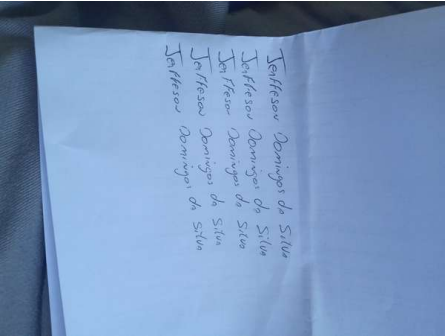 Jerffeson Domingos da Silva
Jerffeson Domingos da Silva
Jerffeson Domingos da Silva
Jerffeson Domingos da Silva
Jerffeson Domingos da Silva